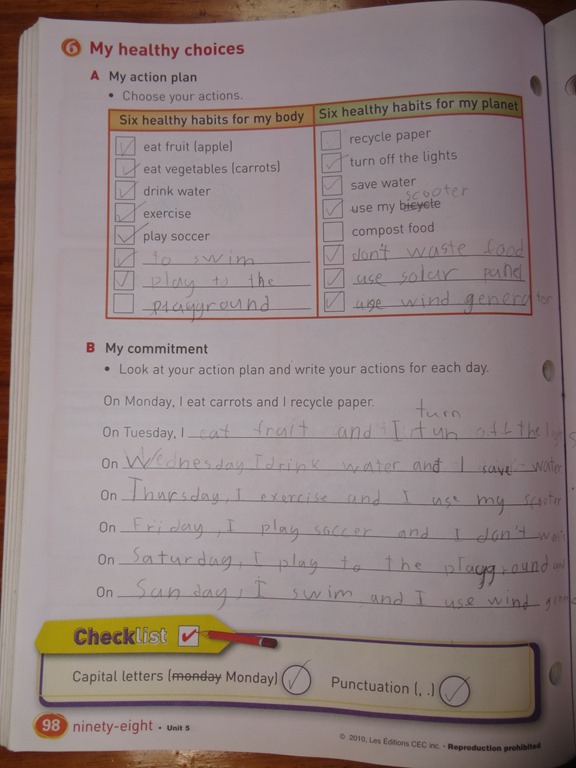 6 My healthy choices
A My action plan
• Choose your actions.
Six healthy habits for my body
eat fruit (apple)
eat vegetables (carrots)
drink water
exercise
play soccer
to swim
play to the
playground
Six healthy habits for my planet
recycle paper
turn off the lights
save water
scooter
use my bicycle
compost food
don't waste food
use solar panel
use wind generator
B My commitment
• Look at your action plan and write your actions for each day.
On Monday, I eat carrots and I recycle paper.
turn
On Tuesday, I eat fruit and I tun off the
On Wednesday I drink water and I save water
On Thursday, I exercise and I use my scooter
On Friday, I play soccer and I don't
On Saturday, I play to the playground and
On Sunday, I swim and I use wind
Checklist
Capital letters (monday Monday)
Punctuation (, .)
98 ninety-eight • Unit 5
© 2010, Les Éditions CEC inc. • Reproduction prohibited